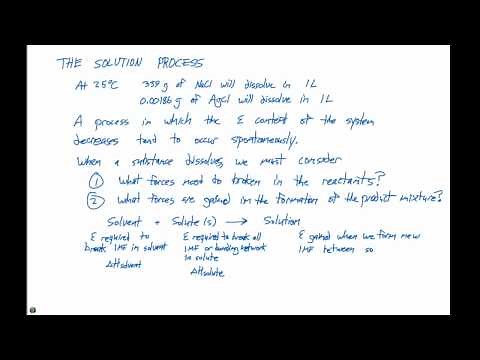 THE SOLUTION PROCESS
At 25°C 359 g of NaCl will dissolve in 1L
0.00186 g of AgCl will dissolve in 1L
A process in which the E content of the system
decreases tend to occur spontaneously.
When a substance dissolves, we must consider
① What forces need to broken in the reactants?
② What forces are gained in the formation of the product mixture?
Solvent + Solute(s) → Solution
E required to break IMF in solvent
ΔHsolvent
E required to break all IMF or bonding network in solute
ΔHsolute
E gained when we form new IMF between so